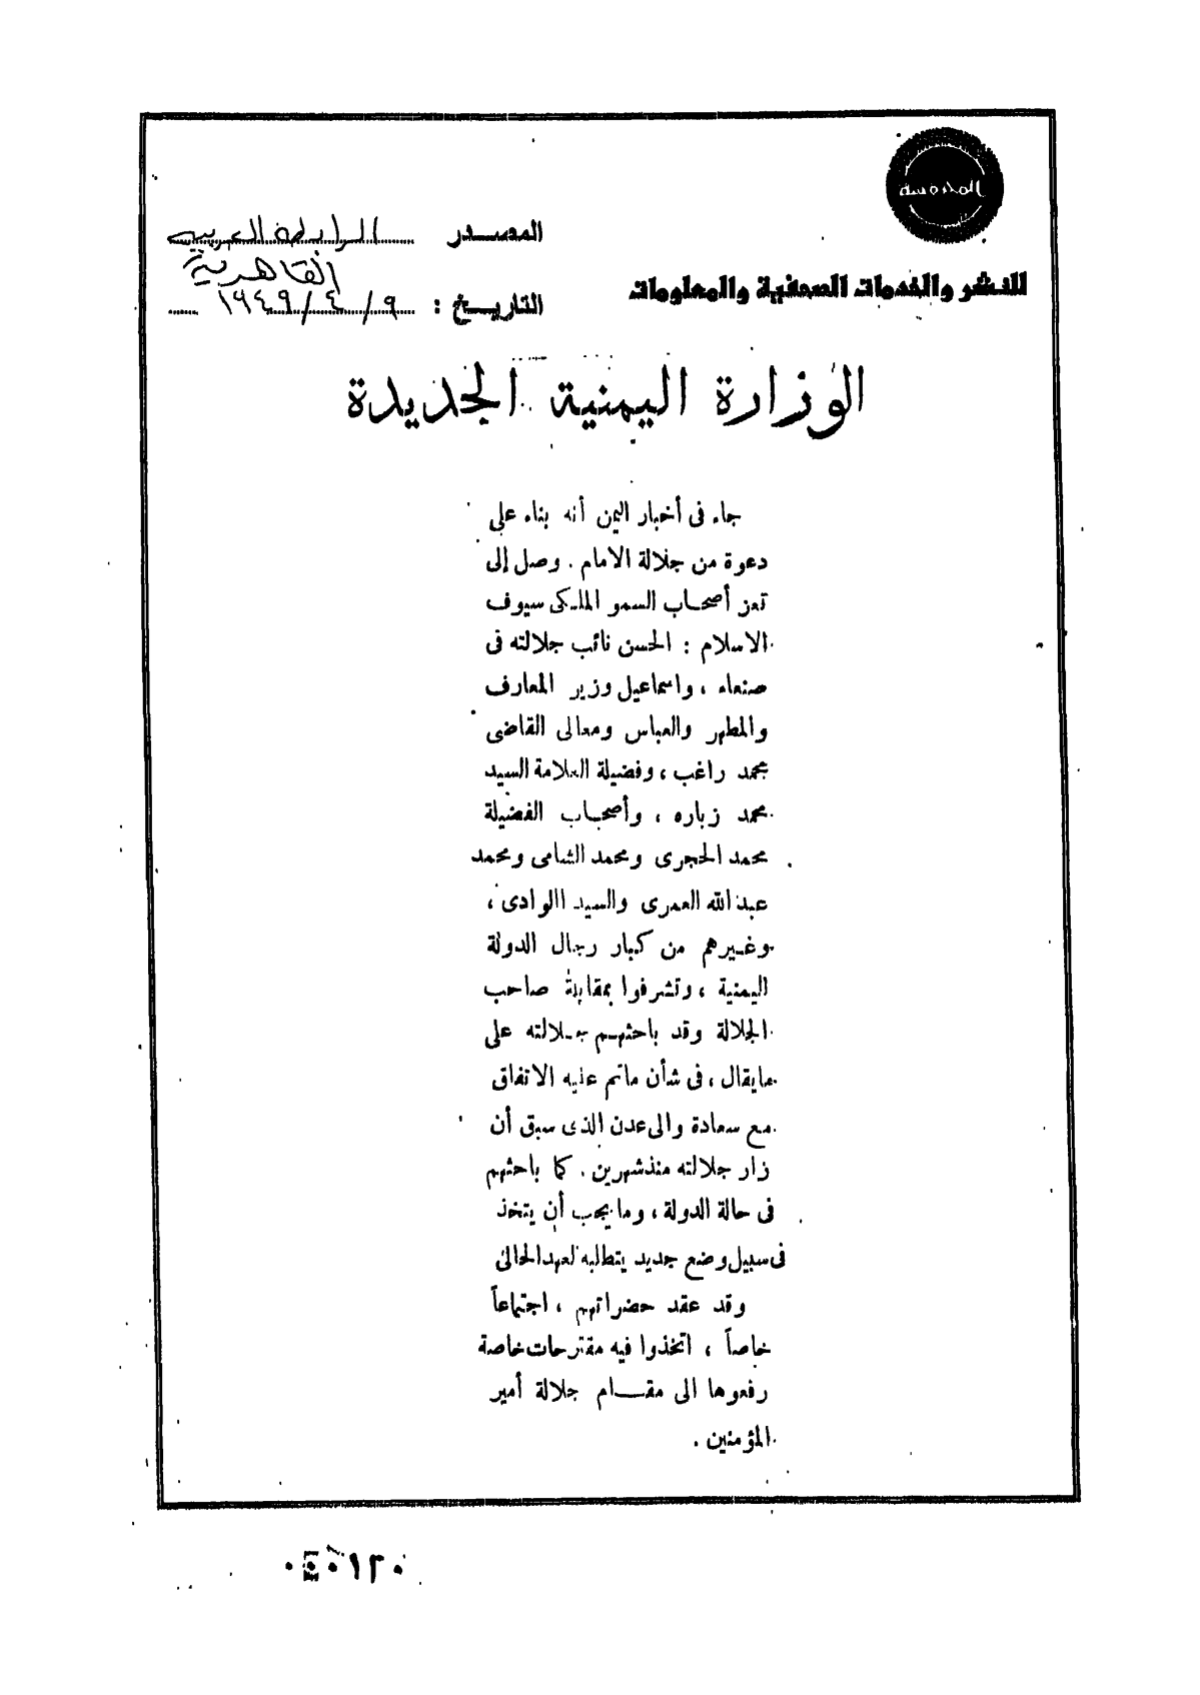 المحروسة
للنشر والخدمات الصحفية والمعلومات
المصدر الرابطة العربيه
القاهرية
التاريخ : ٩/٤/١٩٤٩
الوزارة اليمنية الجديدة
جاء فى أخبار اليمن أنه بناء على
دعوة من جلالة الامام . وصل إلى
تعز أصحاب السمو الملكى سيوف
الاسلام : الحسن نائب جلالته فى
صنعاء ، واسماعيل وزير المعارف
والمطهر والعباس ومعالى القاضى
محمد راغب ، وفضيلة العلامة السيد
محمد زباره ، وأصحاب الفضيلة
محمد الحجرى ومحمد الشامى ومحمد
عبد الله العمرى والسيد االوادى ،
وغيرهم من كبار رجال الدولة
اليمنية ، وتشرفوا بمقابلة صاحب
الجلالة وقد باحثهم جلالته على
مايقال ، فى شأن ماتم عليه الاتفاق
مع سعادة والى عدن الذى سبق أن
زار جلالته منذ شهرين . كما باحثهم
فى حالة الدولة ، وما يجب أن يتخذ
فى سبيل وضع جديد يتطلبه لعهد الحالى
وقد عقد حضراتهم ، اجتماعاً
خاصاً ، اتخذوا فيه مقترحات خاصة
رفعوها الى مقام جلالة أمير
المؤمنين .